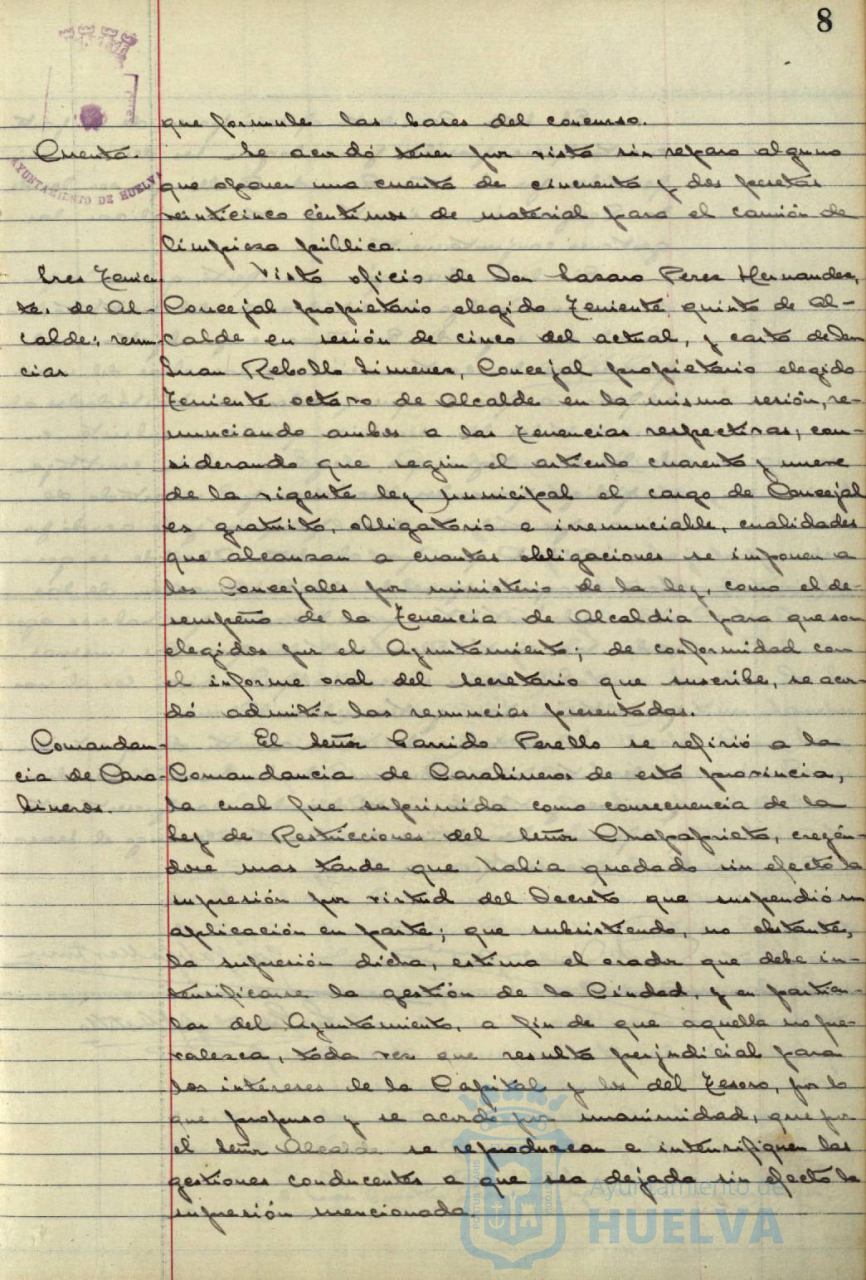 8
que formule las bases del concurso.
Cuenta. Se acordó tener por vista sin reparo alguno
que oponer una cuenta de cincuenta y dos pesetas
AYUNTAMIENTO DE HUELVA
veinticinco céntimos de material para el camión de
limpieza pública.
Sres Tenien- Visto oficio de Don Lazaro Perez Hernandez,
tes de Al- Concejal propietario elegido Teniente quinto de Al-
calde; renun- calde en sesión de cinco del actual, y carta de Don
cias Juan Rebollo Jimenez, Concejal propietario elegido
Teniente octavo de Alcalde en la misma sesión, re-
nunciando ambos a las Tenencias respectivas; con-
siderando que según el artículo cuarenta y nueve
de la vigente ley municipal el cargo de Concejal
es gratuito, obligatorio e irrenunciable, cualidades
que alcanzan a cuantas obligaciones se imponen a
los Concejales por ministerio de la ley, como el de-
sempeño de la Tenencia de Alcaldia para que son
elegidos por el Ayuntamiento; de conformidad con
el informe oral del Secretario que suscribe, se acor-
dó admitir las renuncias presentadas.
Comandan- El Señor Garrido Perello se refirió a la
cia de Cara- Comandancia de Carabineros de esta provincia,
bineros. la cual fue suprimida como consecuencia de la
Ley de Restricciones del Señor Chapaprieta, creyén-
dose mas tarde que habia quedado sin efecto la
supresión por virtud del Decreto que suspendió su
aplicación en parte; que subsistiendo, no obstante,
la supresión dicha, estima el orador que debe in-
tensificarse la gestión de la Ciudad, y en particu-
lar del Ayuntamiento, a fin de que aquella no pre-
valezca, toda vez que resulta perjudicial para
los intereses de la Capital y los del Tesoro, por lo
que propuso y se acordó por unanimidad, que por
el Señor Alcalde se reproduzcan e intensifiquen las
gestiones conducentes a que sea dejada sin efecto la
supresión mencionada.
Ayuntamiento de
HUELVA